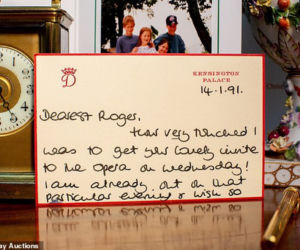 D
KENSINGTON
PALACE
14.1.91.
Dearest Roger,
How very touched I
was to get your lovely invite
to the Opera on Wednesday!
I am already out on that
particular evening & wish so
ay Auctions